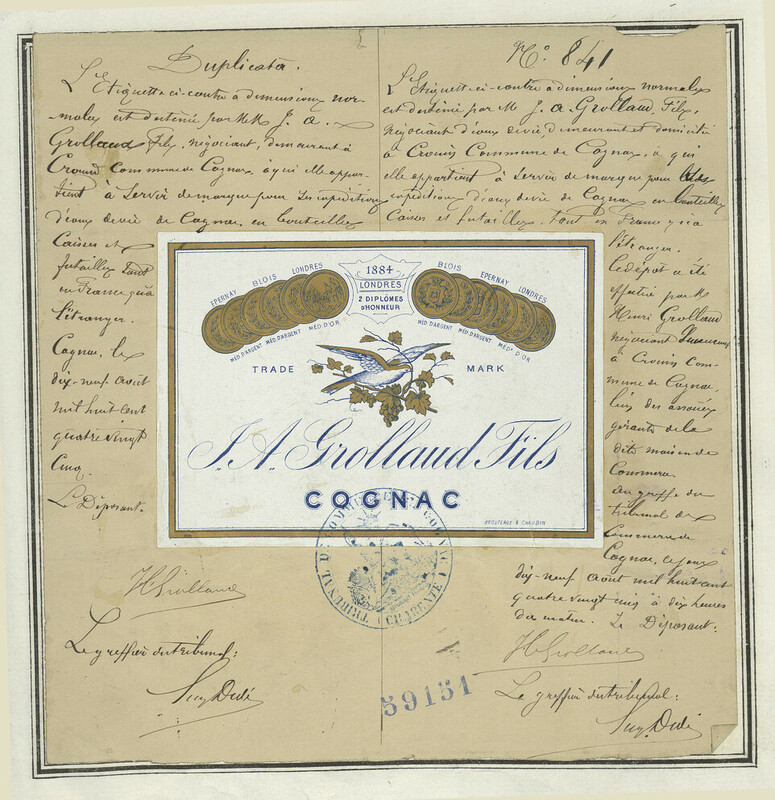 Duplicata.
L'Etiquette ci-contre à dimensions nor-
males est destinée par MM J. A.
Grollaud Fils, négociant, demeurant à
Crouin Commune de Cognac à qui elle appar-
tient à servir de marque pour les expéditions
d'eaux de vie de Cognac en bouteilles
Caisses et
futailles tant
en France qu'à
l'étranger
Cognac, le
dix-neuf août
mil huit cent
quatre vingt
cinq.
Le Déposant.
HGrollaud
Le greffier du tribunal:
N° 841
L'Etiquette ci-contre à dimensions normales
est destinée par M J. A. Grollaud, Fils,
négociant d'eaux de vie, demeurant et domicilié
à Crouin Commune de Cognac, à qui
elle appartient à servir de marque pour les
expéditions d'eaux de vie de Cognac en bouteilles
Caisses et futailles tant en France qu'à
l'étranger.
Le dépôt a été
effectué par M
Henri Grollaud
négociant demeurant
à Crouin Com-
mune de Cognac,
l'un des associés
gérants de la
dite maison de
Commerce
au greffe du
tribunal de
Commerce de
Cognac, ce jour
dix-neuf août mil huit cent
quatre vingt cinq à dix heures
du matin. Le Déposant:
HGrollaud
Le greffier du tribunal:
EPERNAY BLOIS LONDRES
MED D'ARGENT MED D'ARGENT MED D'OR
1884
LONDRES
2 DIPLÔMES
D'HONNEUR
BLOIS EPERNAY LONDRES
MED D'ARGENT MED D'ARGENT MED D'OR
TRADE MARK
J. A. Grollaud Fils
COGNAC
TRIBUNAL DE COMMERCE DE COGNAC
(CHARENTE)
59151